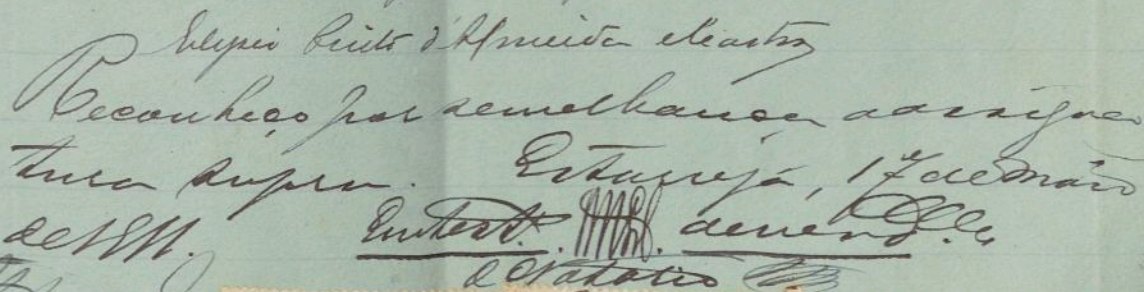 Elysio Pinto d'Almeida e Castro
Reconheço por semelhança a assigna
tura supra. Estarreja, 17 de Maio
de 1911. Em test.º de verd.e
O Notario